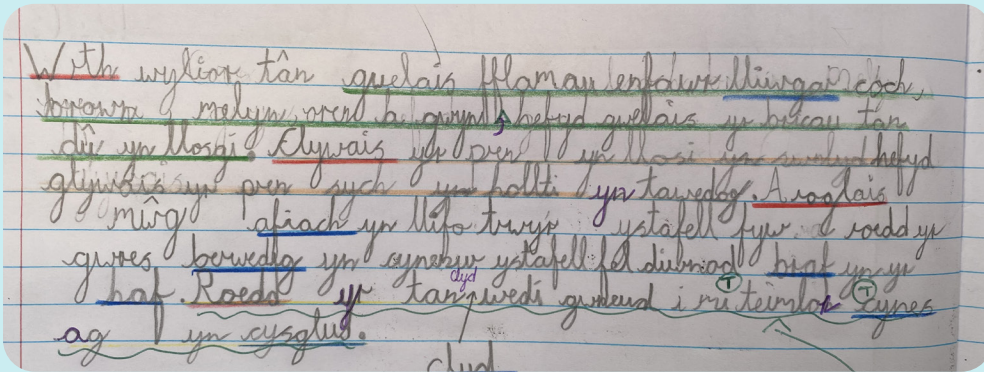 Wrth wylior tân gwelais fflamau enfawr lliwgar coch,
brown, melyn, oren a gwyn, hefyd gwelais yr bricau tân
dû yn llosgi. Clywais yr pren yn llosi yn hefyd
glywais yr pren sych yn hollti yn tawedog. Aroglais
mŵg afiach yn llifo trwyr ystafell fyw. roedd yr
gwres berwedig yn cynehu ystafell fel diwrnod braf yn yr
haf. Roedd yr tan clyd wedi gwneud i mi teimlo T cynes T
ag yn cysglud.
clyd